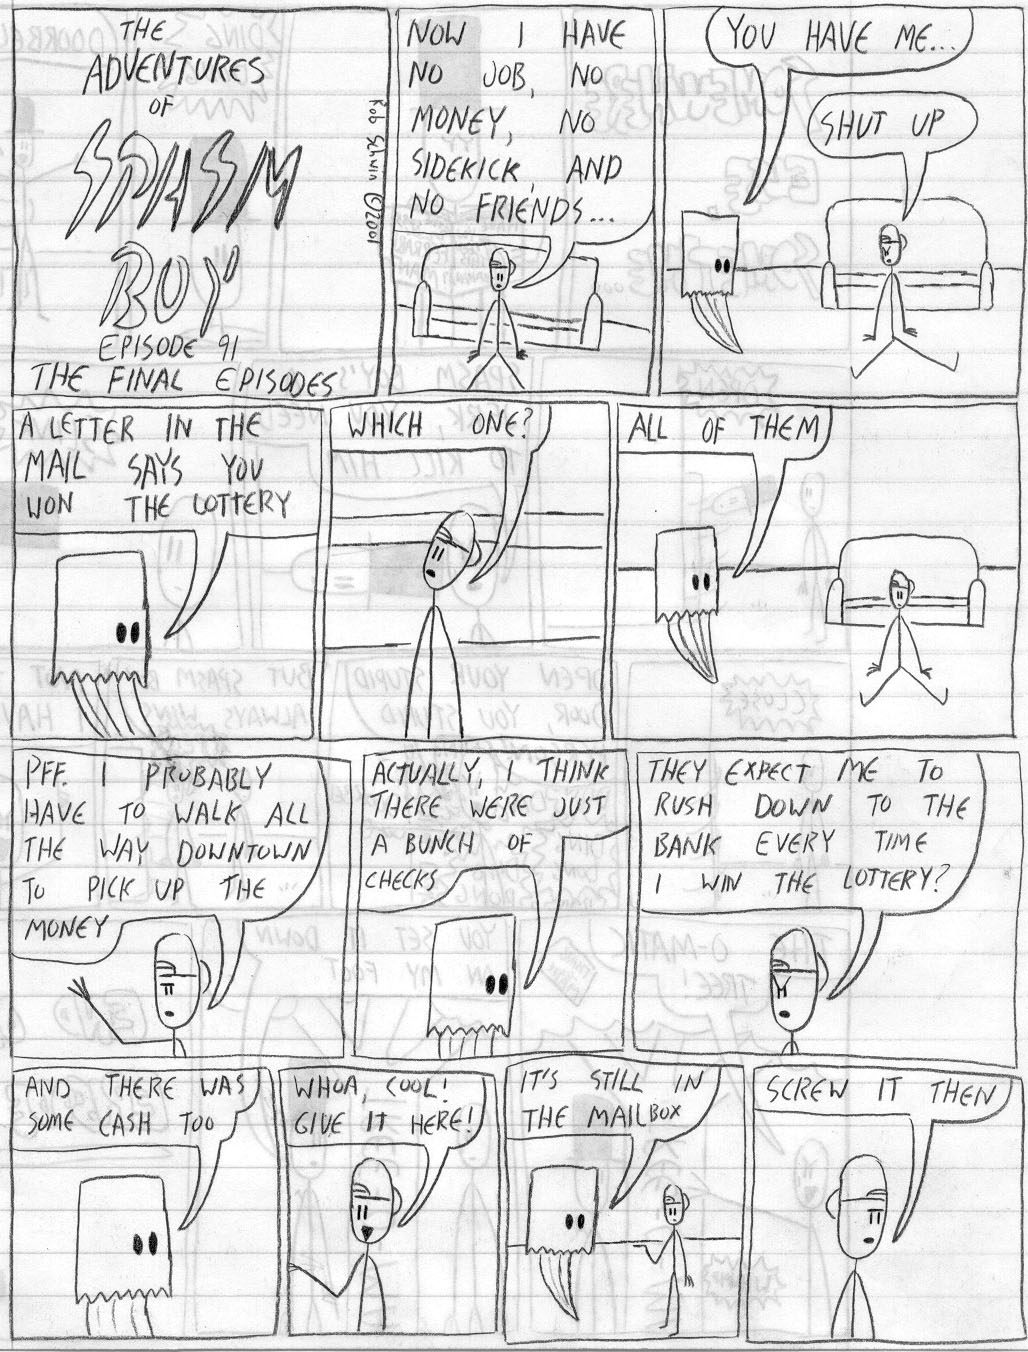 THE
ADVENTURES
OF
SPASM
BOY
EPISODE 91
THE FINAL EPISODES
©2001
NOW I HAVE
NO JOB, NO
MONEY, NO
SIDEKICK, AND
NO FRIENDS...
YOU HAVE ME...
SHUT UP
A LETTER IN THE
MAIL SAYS YOU
WON THE LOTTERY
WHICH ONE?
ALL OF THEM
PFF. I PROBABLY
HAVE TO WALK ALL
THE WAY DOWNTOWN
TO PICK UP THE
MONEY
ACTUALLY, I THINK
THERE WERE JUST
A BUNCH OF
CHECKS
THEY EXPECT ME TO
RUSH DOWN TO THE
BANK EVERY TIME
I WIN THE LOTTERY?
AND THERE WAS
SOME CASH TOO
WHOA, COOL!
GIVE IT HERE!
IT'S STILL IN
THE MAILBOX
SCREW IT THEN